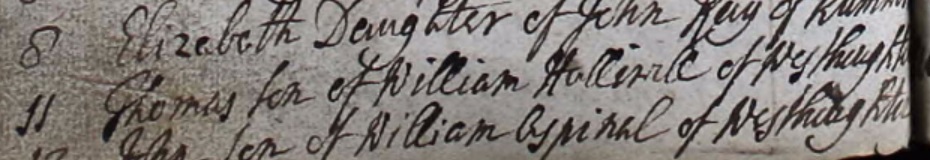 8 Elizabeth Daughter of John Kay of
11 Thomas son of William of Westhaught
John son of William Aspinal of Westhaughto